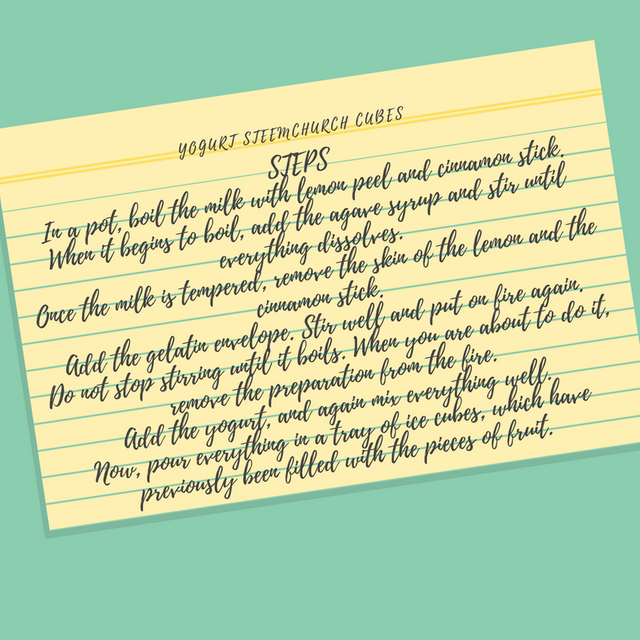 YOGURT STEEMCHURCH CUBES
STEPS
In a pot, boil the milk with lemon peel and cinnamon stick.
When it begins to boil, add the agave syrup and stir until
everything dissolves.
Once the milk is tempered, remove the skin of the lemon and the
cinnamon stick.
Add the gelatin envelope. Stir well and put on fire again.
Do not stop stirring until it boils. When you are about to do it,
remove the preparation from the fire.
Add the yogurt, and again mix everything well.
Now, pour everything in a tray of ice cubes, which have
previously been filled with the pieces of fruit.